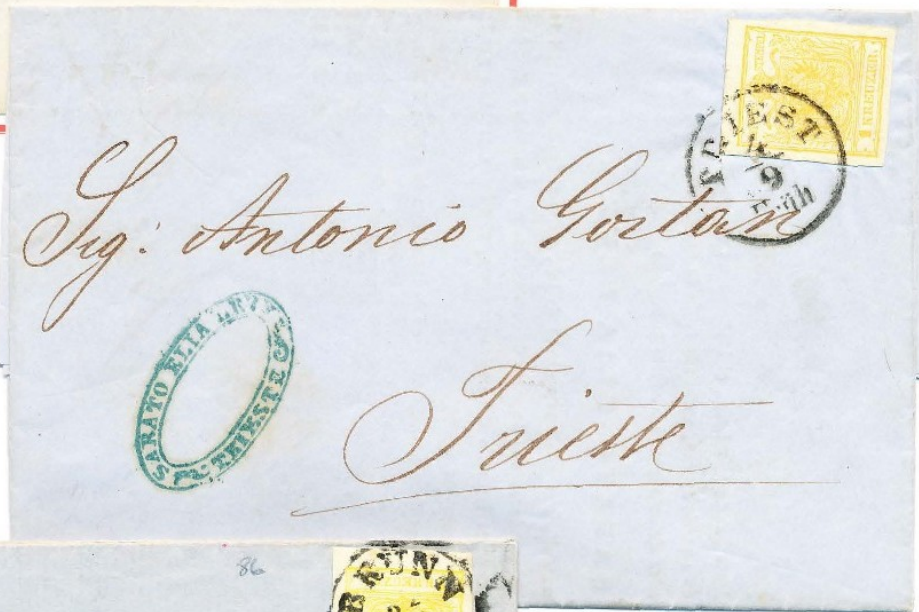 1 KREUZER
TRIEST
9
Früh
Sig: Antonio Gostan
SABATO ELIA LEVI
TRIESTE
Trieste
86
BRUNN